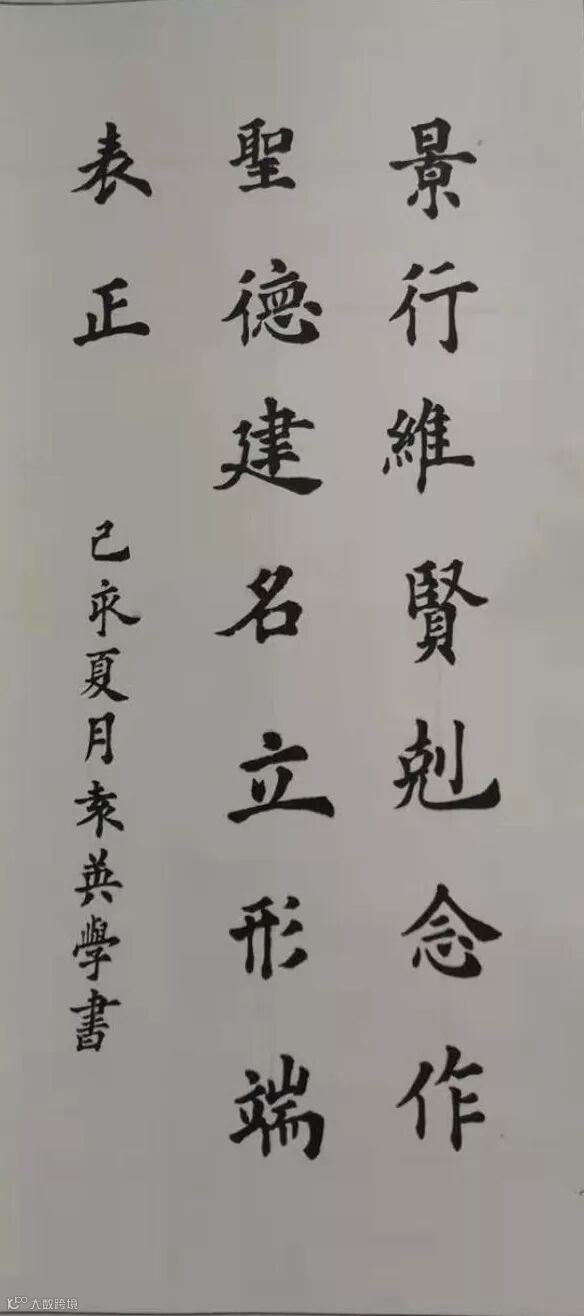 景行維賢剋念作
聖德建名立形端
表正
己亥夏月袁英學書
大数跨境